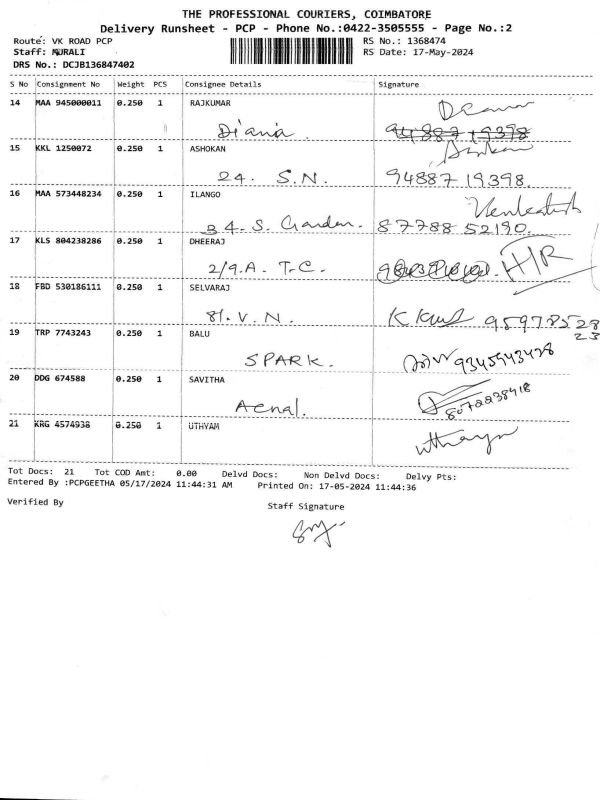 THE PROFESSIONAL COURIERS, COIMBATORE
Delivery Runsheet - PCP - Phone No.:0422-3505555 - Page No.:2
Route: VK ROAD PCP RS No.: 1368474
Staff: MURALI RS Date: 17-May-2024
DRS No.: DCJB136847402
S No Consignment No Weight PCS Consignee Details Signature
14 MAA 945000011 0.250 1 RAJKUMAR
Diana. 94887 19398
15 KKL 1250072 0.250 1 ASHOKAN
24. S.N. 94887 19398.
16 MAA 573448234 0.250 1 ILANGO Venkatesh
34. S. Garden. 87788 52190.
17 KLS 804238286 0.250 1 DHEERAJ H/R
2/9.A. T.C.
18 FBD 530186111 0.250 1 SELVARAJ
81. V. N. 9597852823
19 TRP 7743243 0.250 1 BALU
SPARK. 9345943428
20 DDG 674588 0.250 1 SAVITHA
8072238418
21 KRG 4574938 0.250 1 UTHYAM uthayam
Tot Docs: 21 Tot COD Amt: 0.00 Delvd Docs: Non Delvd Docs: Delvy Pts:
Entered By :PCPGEETHA 05/17/2024 11:44:31 AM Printed On: 17-05-2024 11:44:36
Verified By Staff Signature